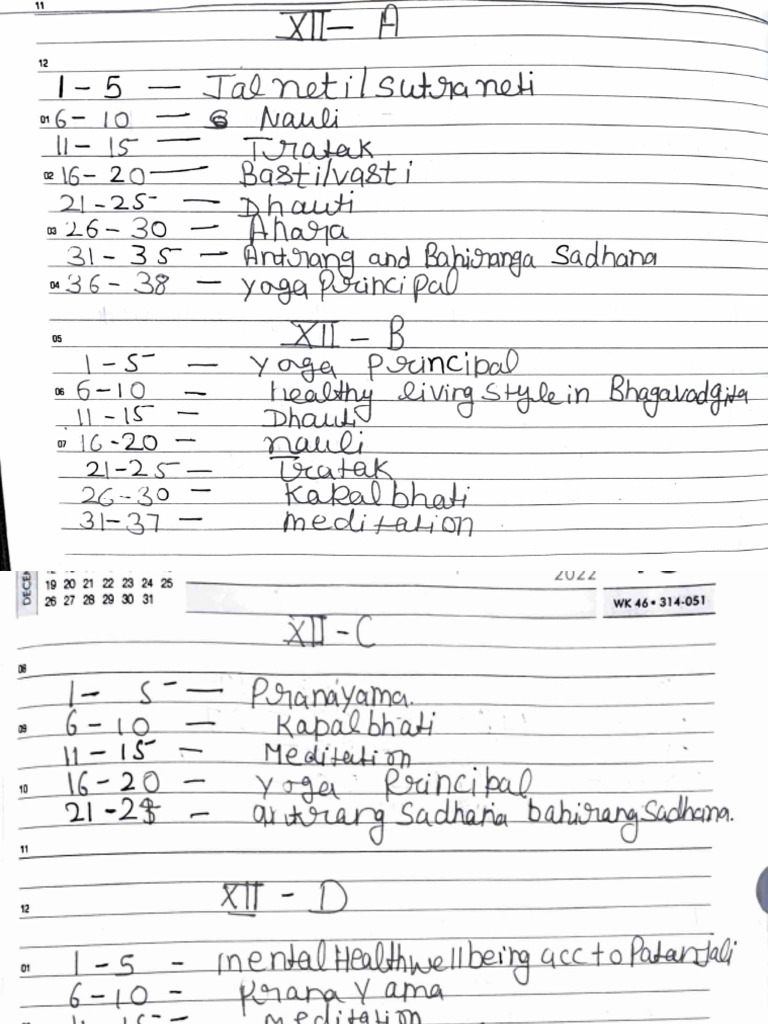 11
XII - A
12
1 - 5 — Jal neti/sutra neti
01 6 - 10 — Nauli
11 - 15 — Tratak
02 16 - 20 — Basti/vasti
21 - 25 — Dhauti
03 26 - 30 — Ahara
31 - 35 — Antrang and Bahiranga Sadhana
04 36 - 38 — yoga Principal
05 XII - B
1 - 5 — yoga principal
06 6 - 10 — healthy living style in Bhagavadgita
11 - 15 — Dhauti
07 16 - 20 — nauli
21 - 25 — Tratak
26 - 30 — Kakal bhati
31 - 37 — meditation
DECEM 19 20 21 22 23 24 25 2022
26 27 28 29 30 31 WK 46 • 314-051
XII - C
08
1 - 5 — Pranayama.
09 6 - 10 — Kapal bhati
11 - 15 — Meditation
10 16 - 20 — yoga Principal
21 - — antrang Sadhana bahirang Sadhana.
11
12 XII - D
01 1 - 5 - mental Health wellbeing acc to Patanjali
6 - 10 - prana y ama
11 - 15 - meditation